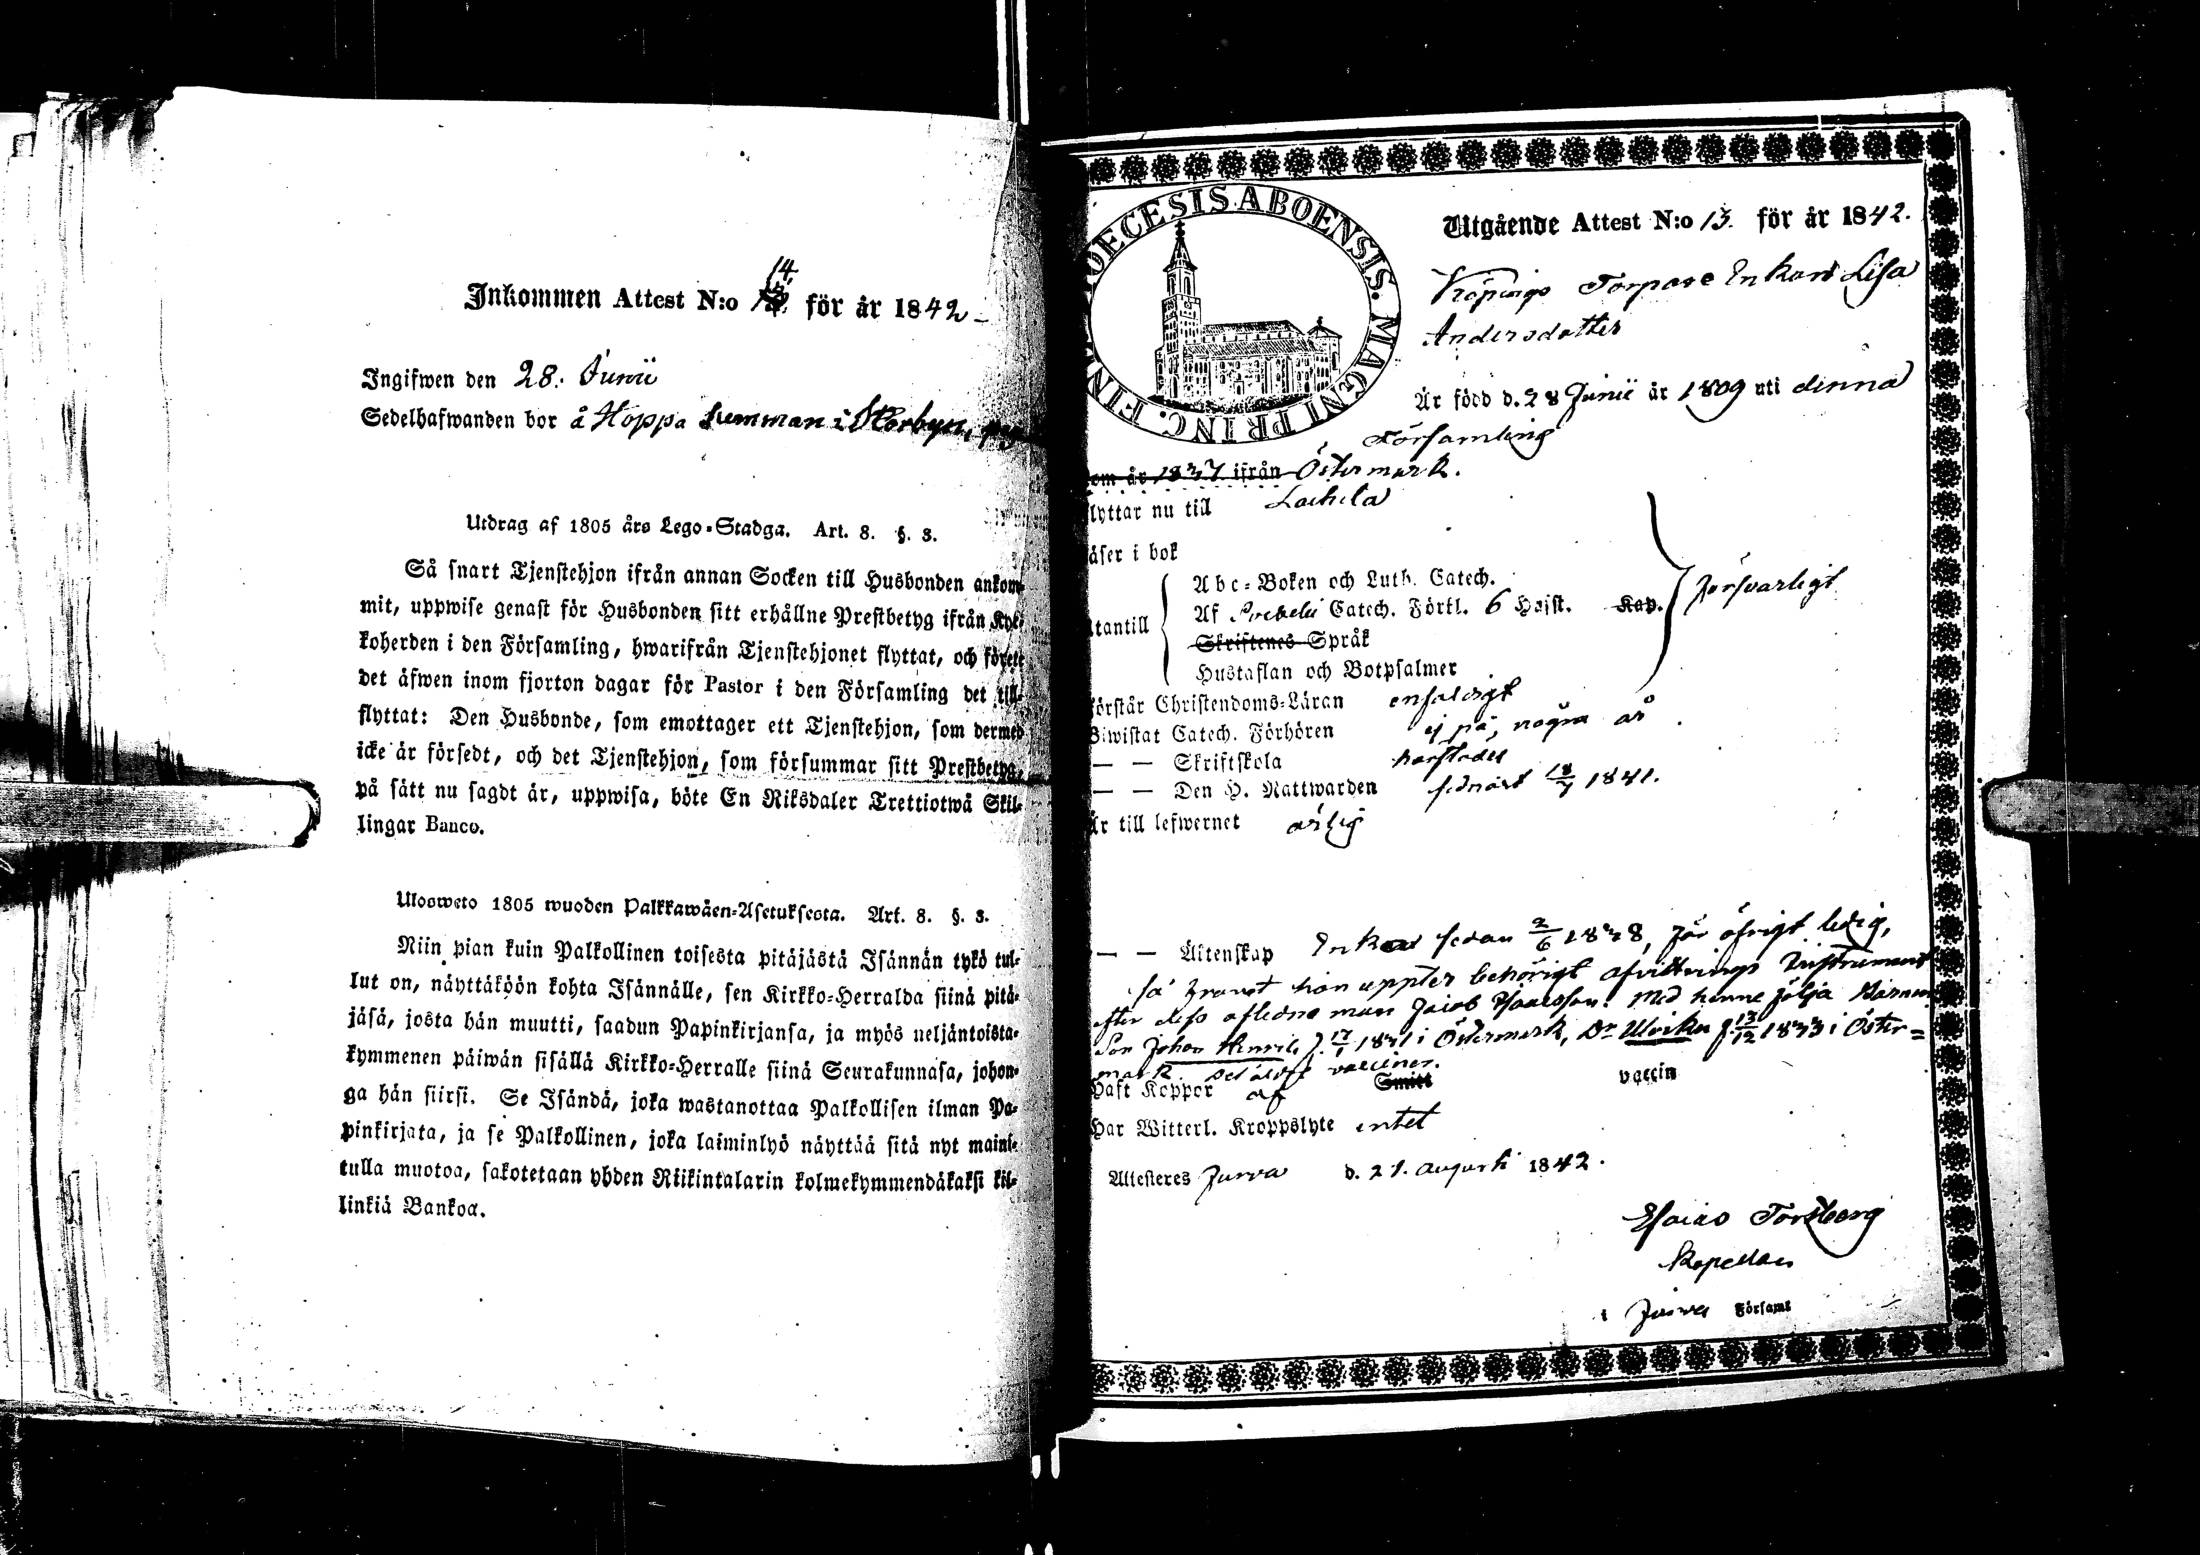 Inkommen Attest N:o 14. för år 1842
Ingifwen den 28. Junii
Sedelhafwanden bor å Hoppa
Utdrag af 1805 års Lego-Stadga. Art. 8. §. 3.
Så snart Tjenstehjon ifrån annan Socken till Husbonden ankom-
mit, uppwise genast för Husbonden sitt erhållne Prestbetyg ifrån Kyr-
koherden i den Församling, hwarifrån Tjenstehjonet flyttat, och förete
det äfwen inom fjorton dagar för Pastor i den Församling det till-
flyttat: Den Husbonde, som emottager ett Tjenstehjon, som dermed
icke är försedt, och det Tjenstehjon, som försummar sitt Prestbetyg,
på sätt nu sagdt är, uppwisa, böte En Riksdaler Trettiotwå Skil-
lingar Banco.
Ulosweto 1805 wuoden Palkkawäen-Asetuksesta. Art. 8. §. 3.
Niin pian kuin Palkollinen toisesta pitäjästä Isännän tykö tul-
lut on, näyttäköön kohta Isännälle, sen Kirkko-Herralda siinä pitä-
jäsä, josta hän muutti, saadun Papinkirjansa, ja myös neljäntoista-
kymmenen päiwän sisällä Kirkko-Herralle siinä Seurakunnasa, johon-
ga hän siirsi. Se Isändä, joka wastanottaa Palkollisen ilman Pa-
pinkirjata, ja se Palkollinen, joka laiminlyö näyttää sitä nyt maini-
tulla muotoa, sakotetaan yhden Riikintalarin kolmekymmendäkaksi kil-
linkiä Bankoa.
DIOECESIS ABOENSIS. MAGNI PRINC. FIN
Utgående Attest N:o 13. för år 1842.
Torpare Enkan Lisa
Andersdotter
Är född d. 28 Junii år 1809 uti denna
Församling
om år 1837 ifrån Östermark.
lyttar nu till Laihela
äser i bok
Abc-Boken och Luth. Catech.
tantill Af Svebelii Catech. Förkl. 6 Hufst. Kap. försvarligt
Skriftenes Språk
Hustaflan och Botpsalmer
örstår Christendoms-Läran enfaldigt
Biwistat Catech. Förhören ej på några år
— — Skriftskola
— — Den H. Nattwarden sednast 18/7 1841.
Är till lefwernet ärlig
— — Äktenskap Enka sedan 2/6 1838, för öfrigt ledig,
så framt hon uppter behörigt afvittrings Instrument
efter dess aflidne man Jacob Isaacsson. Med henne följa Barnen
Son Johan Henrik f. 17/1 1831 i Östermark, Dr Ulrika f. 13/12 1833 i Öster=
mark vacciner.
Haft Koppor af Smitt vaccin
Har Witterl. Kroppslyte intet
Attesteres Jurva d. 21. augusti 1842.
Esaias Forsberg
Kapellan
i Jurva Församl